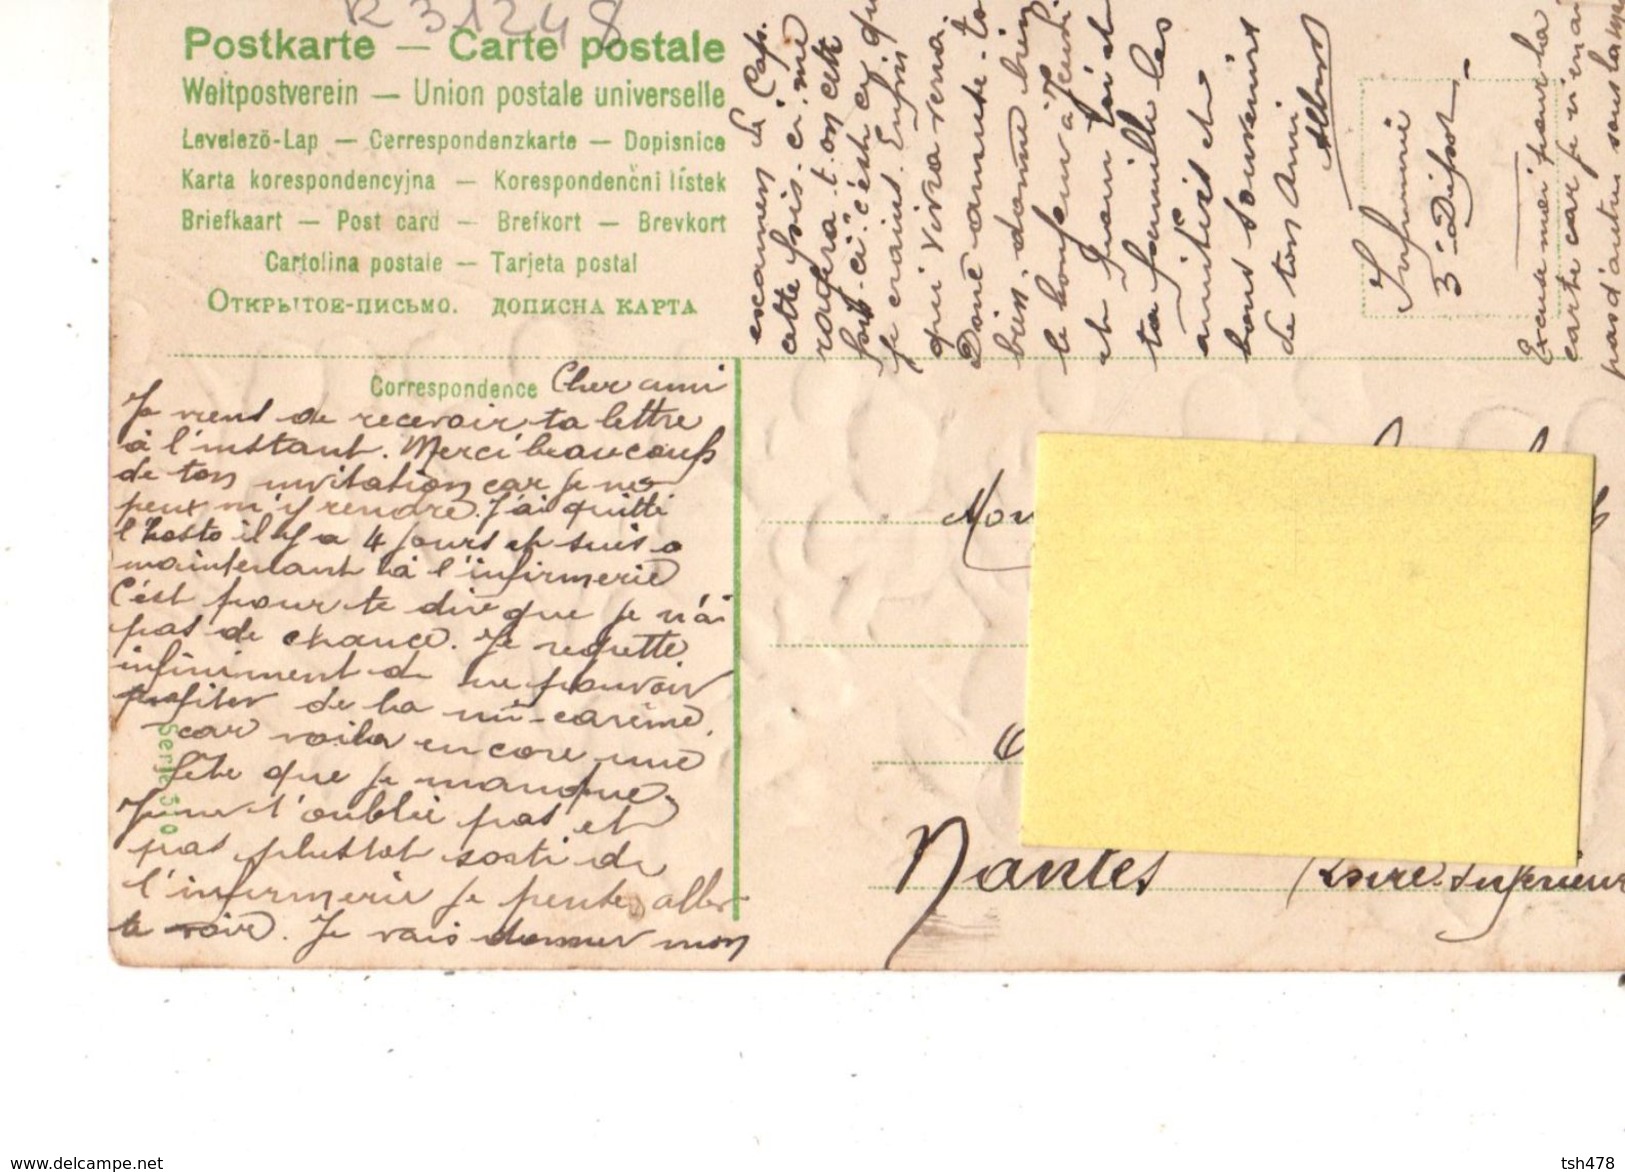 R 31248
Postkarte — Carte postale
Weltpostverein — Union postale universelle
Levelező-Lap — Cerrespondenzkarte — Dopisnice
Karta korespondencyjna — Korespondenčni lístek
Briefkaart — Post card — Brefkort — Brevkort
Cartolina postale — Tarjeta postal
Открытое-письмо. дописна карта
Correspondence
Cher ami
Je viens de recevoir ta lettre
à l'instant. Merci beaucoup
de ton invitation car je ne
peux m'y rendre. J'ai quitté
l'hosto il y a 4 jours et suis
maintenant à l'infirmerie
C'est pour te dire que je n'ai
pas de chance. Je regrette
infiniment de ne pouvoir
profiter de la mi-carême.
car voila encore une
fête que je manque.
Je ne t'oublie pas et
pas plustot sorti de
l'infirmerie je pense aller
te voir. Je vais donner mon
Serie
examen de Cap.
cette fois-ci me
ratera-t-on cette
fois-ci c'est ce que
je crains. Enfin
qui vivra verra.
Donc annonce-to
bien donne bien
le bonjour à
et Quant toi et
ta famille les
amitiés et
bons Souvenirs
de ton Ami
Albert
Infirmerie
3e Dépot
Excuse moi pour la
carte car je n'en ai
pas d'autres sous la main
Mon
Nantes (Loire-Inférieur
www.delcampe.net
tsh478